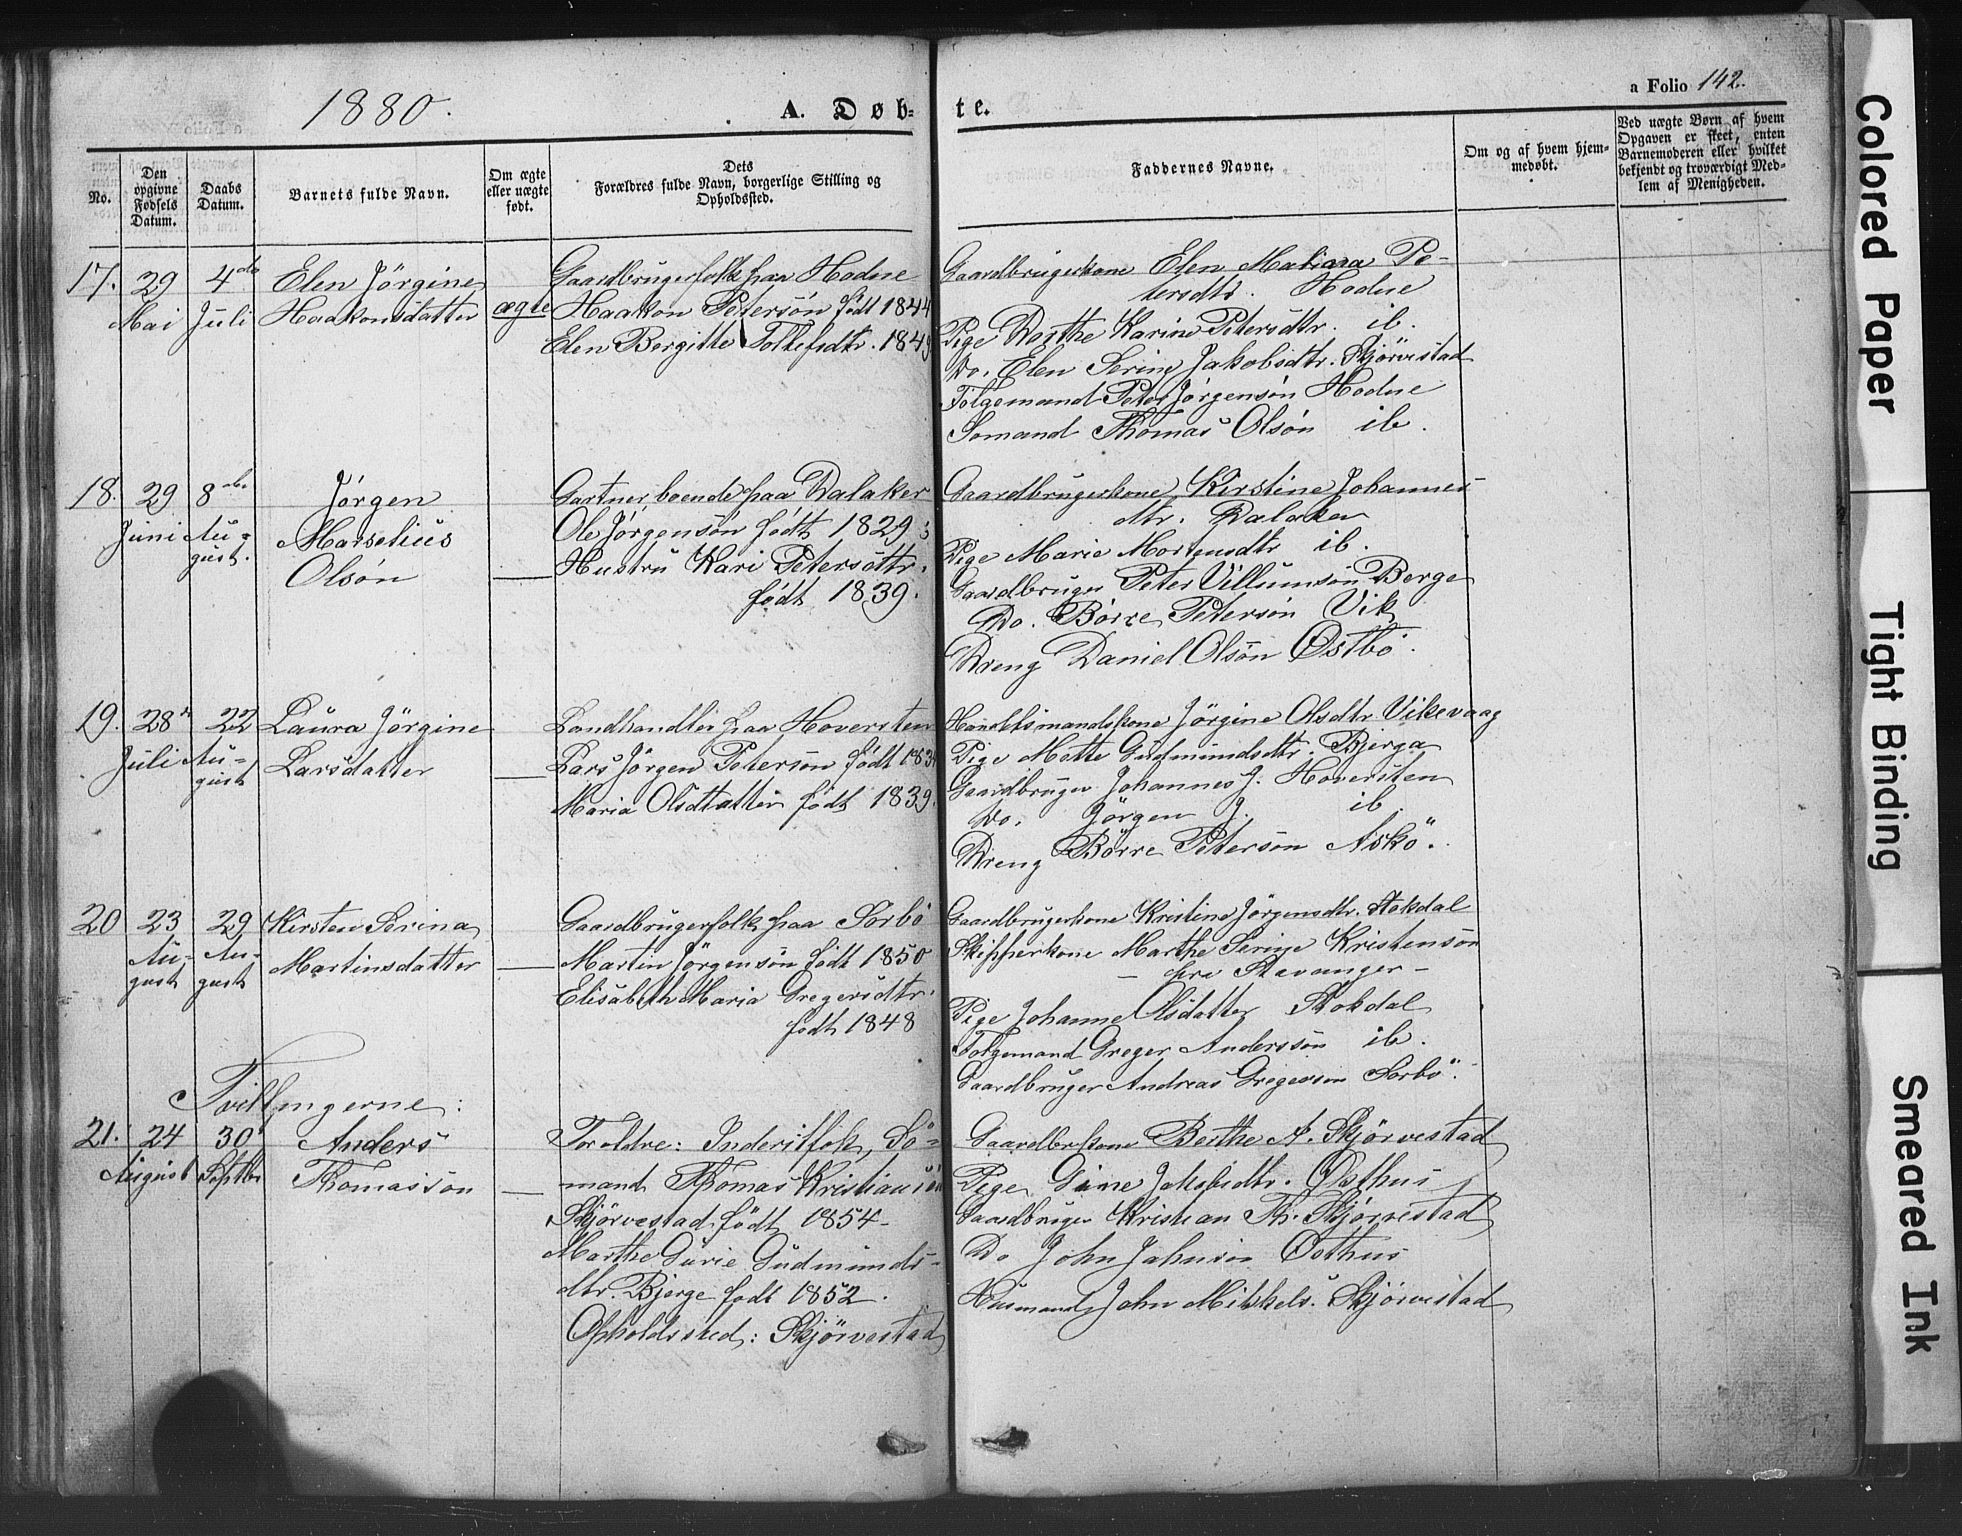 1880.
A. Døb-
te.
a Folio 142.
No.
Den
opgivne
Fødsels
Datum.
Daabs
Datum.
Barnets fulde Navn.
Om ægte
eller uægte
født.
Dets
Forældres fulde Navn, borgerlige Stilling og
Opholdssted.
Faddernes Navne.
Om og af hvem hjem-
medøbt.
Ved uægte Børn af hvem
Opgaven er skeet, enten
Barnemoderen eller hvilket
bekjendt og troværdigt Med-
lem af Menigheden.
17.
29
Mai
4de
Juli
Elen Jörgine
Haakonsdatter
ægte
Gaardbrugerfolk paa Hodne
Haakon Petersön födt 1844
Elen Bergitte Tollefsdtr. 1849
Gaardbrugerkone Elen Pe-
tersdtr. Hodne
Pige Dorthe Karine Petersdtr. ib.
Do. Elen Serine Jakobsdtr. Skjörvestad
Fölgemand Peter Jörgensön Hodne
Sömand Thomas Olsön ib.
18.
29
Juni
8de
Au-
gust.
Jörgen
Marselius
Olsön
Gartner, boende paa Dalaker
Ole Jörgensön födt 1829:
Hustru Kari Petersdtr.
födt 1839.
Gaardbrugerkone Kirstine Johannes-
dtr. Dalaker
Pige Marie Mortensdtr ib.
Gaardbruger Peter Villumsön Berge
Do. Börre Petersön Vik
Dreng Daniel Olsön Östbö.
19.
28
Juli
22
Au-
gust
Laura Jörgine
Larsdatter
Landhandler paa Hoversten
Lars Jörgen Petersön födt
Maria Olsdatter födt 1839.
Handelsmandskone Jörgine Olsdtr. Vikevaag
Pige Mette Gudmundsdtr. Bjerga
Gaardbruger Johannes J. Hoversten
Do. Jörgen J. ib.
Dreng Börre Petersön Askö.
20
23
Au-
gust
29
Au-
gust
Kirsten Serina
Martinsdatter
Gaardbrugerfolk paa Sörbö
Martin Jörgensön födt 1850
Elisabeth Maria Gregersdtr.
födt 1848
Gaardbrugerkone Kristine Jörgensdtr. Stokdal
Skipperkone Marthe Serine Kristensön
- Stavanger -
Pige Johanne Olsdatter Stokdal
Folgemand Greger Anderssön ib.
Gaardbruger Andreas Gregersen Sörbö.
Tvillingerne:
21.
24
August
30
Septbr
Anders
Thomassön
Foreldre: Sö-
mand Thomas Kristiansön
Skjörvestad födt 1854-
Marthe Gurie Gudmunds-
dtr. Bjerge födt 1852.
Opholdssted: Skjörvestad
Gaardbrkone Berthe A. Skjörvestad
Pige Gine Jakobsdtr. Östhus
Gaardbruger Kristian Th. Skjörvestad
Do John Johnsön Östhus
Husmand John Mikkels. Skjörvestad
Colored Paper
Tight Binding
Smeared Ink